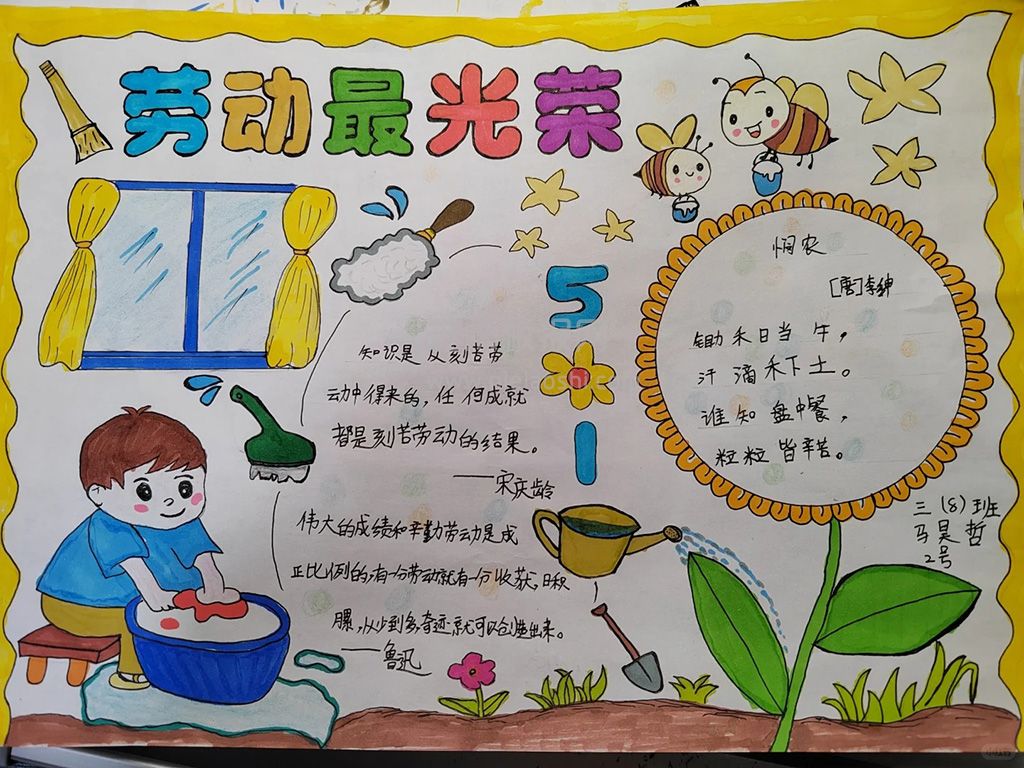 劳动最光荣
5
1
知识是从刻苦劳
动中得来的，任何成就
都是刻苦劳动的结果。
——宋庆龄
伟大的成绩和辛勤劳动是成
正比例的，有一分劳动就有一分收获，日积
月累，从少到多，奇迹就可以创造出来。
——鲁迅
悯农
[唐]李绅
锄禾日当牛，
汗滴禾下土。
谁知盘中餐，
粒粒皆辛苦。
三（8）班
马昊哲
2号
小红书